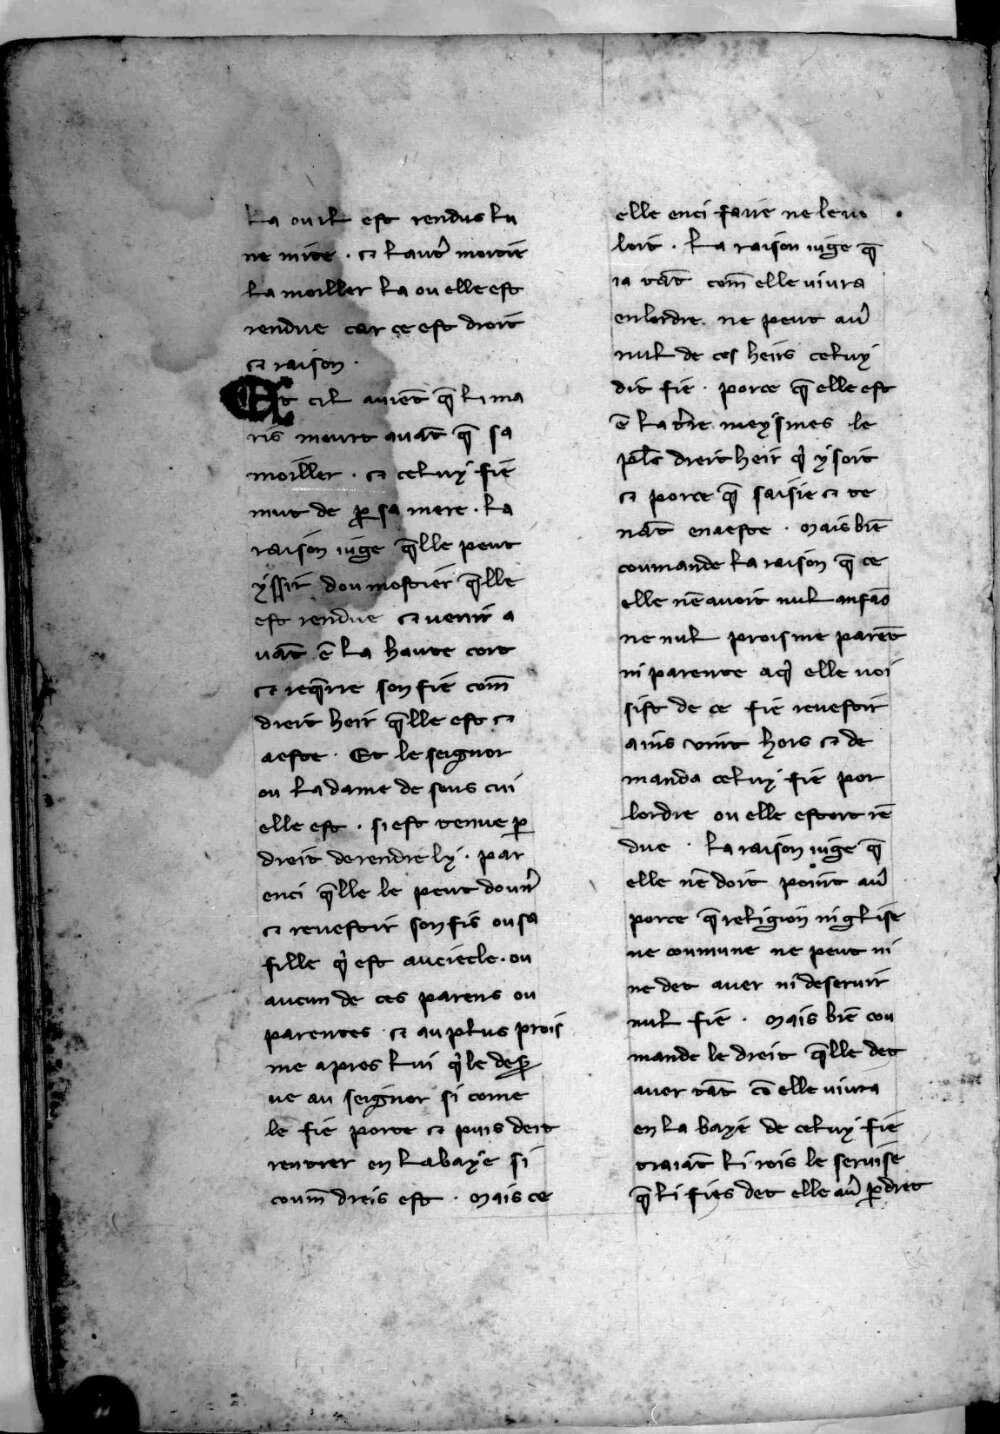 la ou il est rendus lu
ne mite · ⁊ lautr̉ moitie
la moiller la ou elle est
rendue car ce est droit
⁊ raison ·
Et cil auiēt q̄ li ma
ris meurt auāt q̄ sa
moiller · ⁊ celuy fie
mut de ꝑ sa mere · la
raison iuge q̄lle peut
yssir dou mostier q̄lle
est rendue ⁊ uenir a
uāt ē la haute cort
⁊ req̄rre son fie com̄
dreit heir q̄lle est ⁊
aeste · Et le seignor
ou la dame de sous cui
elle est · si est tenue ꝑ
droit de rendre ly · par
enci q̄lle le peut doun̉
⁊ reuestir son fis ou sa
fille q̉ est au ciecle · ou
aucun de ces parens ou
parentes · ⁊ au plus prois
me apres lui q̉ le deß̉
ue au seignor si come
le fie porte ⁊ puis deit
rentrer en labaye si
coum̄ dreis est · Mais ce
elle enci faire ne le uo
loit · la raison iuge q̄
ia tāt com̄ elle uiura
en lordre ne peut aủ
nul de ces heirs celuy
dit fie · por ce q̄ elle est
ē la tr̉re meysmes le
pl̄s dreit heir q̉ y soit
⁊ por ce q̄ saisie ⁊ te
nāt en aeste · Mais biē
coumande la raison q̄ ce
elle nē auoit nul anfāo
ne nul proisme parēt
ni parente a q̉ elle uoi
sist de ce fie reuestir
ains uint hors ⁊ de
manda celuy fie por
lordre ou elle estoit rē
due · la raison iuge q̄
elle nē doit point aủ
por ce q̄ religion ni glise
ne coumune ne peut ni
ne det auer ni deseruir
nul fie · Mais biē cou
mande le dreit q̄lle det
auer tāt cō elle uiura
en la baye de celuy fie
traiāt li rois le seruise
q̄ li fies det elle aủ ꝑ dret